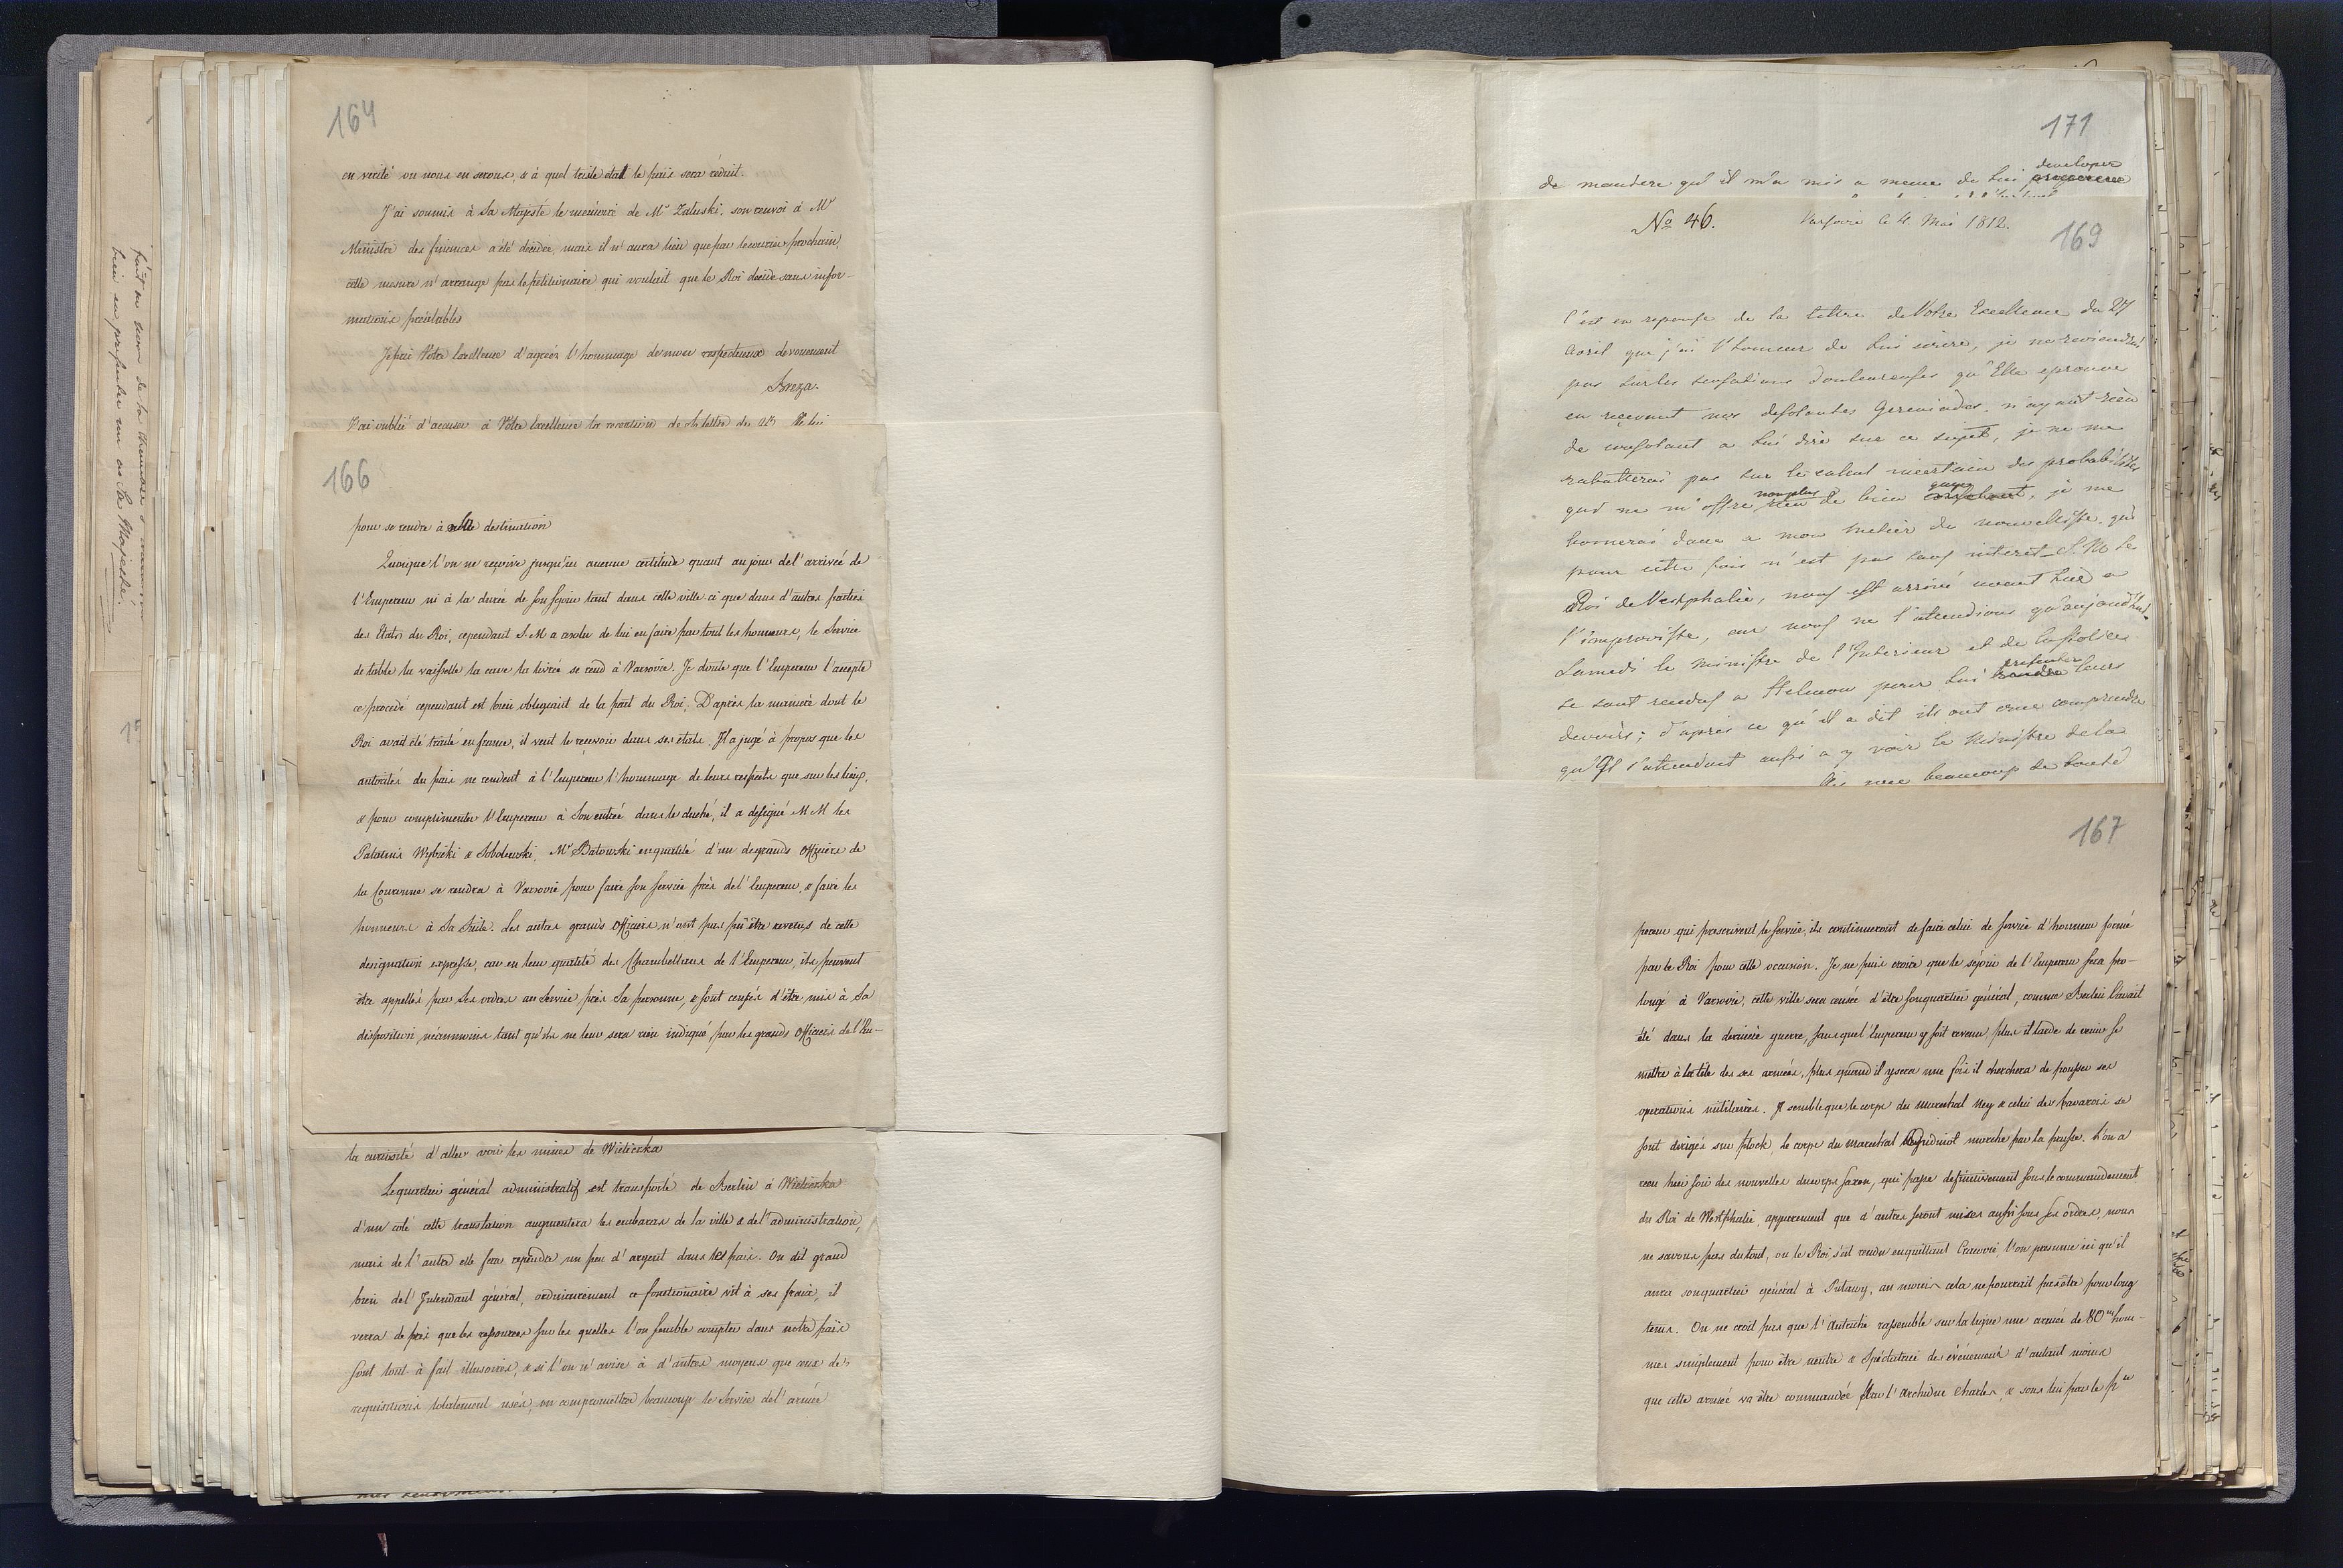 164
en verité on nous en serons, & à quel triste état le païs sera réduit.
J'ai soumis à Sa Majesté le memoire de Mr Zaluski, son renvoi à Mr
Ministre des finances a été décidé, mais il n'aura lieu que par le courier prochain,
cette mesure n'arrange pas le petitionaire qui voulait que le Roi decide sans infor-
mations préalables
Je prie Votre Excellence d'agréer l'hommage de mon respectueux devouement
Breza.
J'ai oublié d'accuser à Votre Excellence la reception de la lettre du
166
pour se rendre à cette destination
Quoique l'on ne reçoive jusqu'ici aucune certitude quant au jour de l'arrivée de
l'Empereur ni à la durée de son sejour tant dans cette ville ci que dans d'autres parties
des Etats du Roi, cependant S. M a resolu de lui en faire partout les honneurs, le Service
de table la vaisselle la cave la livrée se rend à Varsovie. Je doute que l'Empereur l'accepte
ce procedé cependant est bien obligeant de la part du Roi. D'après la manière dont le
Roi avait été traité en france, il veut le recevoir dans ses états. Il a jugé à propos que les
autorités du païs ne rendent à l'Empereur l'hommage de leurs respects que sur les lieux,
& pour complimenter l'Empereur à Son entrée dans le duché, il a designé M M les
Palatins Wybicki & Sobolewski. Mr Batowski en qualité d'un de grands Officiers de
la Couronne se rendra à Varsovie pour faire son service près de l'Empereur, & faire les
honneurs à Sa Suite. Les autres grands Officiers n'ont pas pu être revetus de cette
designation expresse, car en leur qualité des Chambellans de l'Empereur, ils peuvent
être appellés par Ses ordres au Service près Sa personne, & sont censés d'être mis à Sa
disposition, néanmoins tant qu'il ne leur sera rien indiqué par les grands Officiers de l'Em-
la curiosité d'aller voir les mines de Wieliczka
Le quartier général administratif est transporté de Berlin à
d'un coté cette translation augmentera les embaras de la ville & de l'administration,
mais de l'autre elle fera repandre un peu d'argent dans le païs. On dit grand
bien de l'Intendant général, ordinairement ce fonctionaire vit à ses fraix, il
verra de près que les ressources sur les quelles l'on semble compter dans notre païs
sont tout à fait illusoires, & si l'on n'avise à d'autres moyens que ceux des
requisitions totalement usés, on compromettra beaucoup le Service de l'armée
171
developer
de maniere qu'il m'a mis a meme de Lui
No 46. Varsovie le 4. Mai 1812.
169
C'est en reponse de la lettre de Votre Excellence du 27
Avril que j'ai l'honneur de Lui ecrire, je ne reviendrai
pas sur les sensations douloureuses qu'Elle eprouve
en reçevant nos desolantes Geremiades. n'ayant rien
de consolant a Lui dire sur ce sujet, je ne me
rabatterai pas sur le calcul incertain des probabilités
non plus
qui ne m'offre rien de bien consolant, je me
bornerai donc a mon metier de nouvelliste. qui
pour cette fois n'est pas sans interet. S. M le
Roi de Westphalie, nous est arrivé avant hier a
l'improviste, car nous ne l'attendions qu'aujourd'hui.
Samedi le Ministre de l'Interieur et de la police
presenter
se sont rendus a pour Lui rendre leurs
devoirs; d'après ce qu'il a dit ils ont crus comprendre
qu'Il s'attendait aussi a y voir le Ministre de la
beaucoup de bonté
167
pereur qui prescrivent le service, ils continueront de faire celui de service d'honneur formé
par le Roi pour cette occasion. Je ne puis croire que le séjour de l'Empereur sera pro-
longé à Varsovie, cette ville sera censée d'être son quartier général, comme Berlin l'avait
été dans la dernière guerre, sans que l'Empereur y soit revenu, plus il tarde de venir se
mettre à la tête des ses armées, plus quand il y sera une fois il cherchera de pousser ses
operations militaires. Il semble que le corps du marechal Ney & celui des bavarois se
sont dirigés sur plock, le corps du marechal Oudinot marche par la prusse. L'on a
recu hier soir des nouvelles du corps saxon, qui passe definitivement sous le commendement
du Roi de Westphalie, apparement que d'autres seront mises aussi sous ses ordres, nous
ne savons pas du tout, ou le Roi s'est rendu en quittant Cracovie, l'on presume ici qu'il
aura son quartier général à Pulawy, au moins cela ne pourrait pas être pour long
tems. On ne croit pas que l'Autriche rassemble sur la ligne une armée de 80m hom-
mes simplement pour être neutre & Spéctatrice des événements d'autant moins
que cette armée va être commandée par l'archiduc Charles, & sous lui par le pce